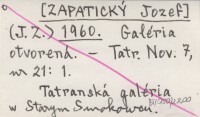 [ZAPATICKÝ Jozef]
(J.Z.) 1960. Galéria
otvorená. - Tatr. Nov. 7,
nr 21: 1.
Tatranská galéria
w Starym Smokowcu.